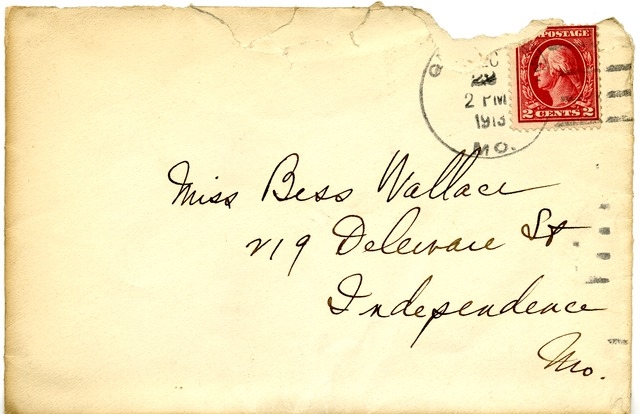 POSTAGE
2 PM
1913
MO.
2 CENTS 2
Miss Bess Wallace
219 Deleware St
Independence
Mo.